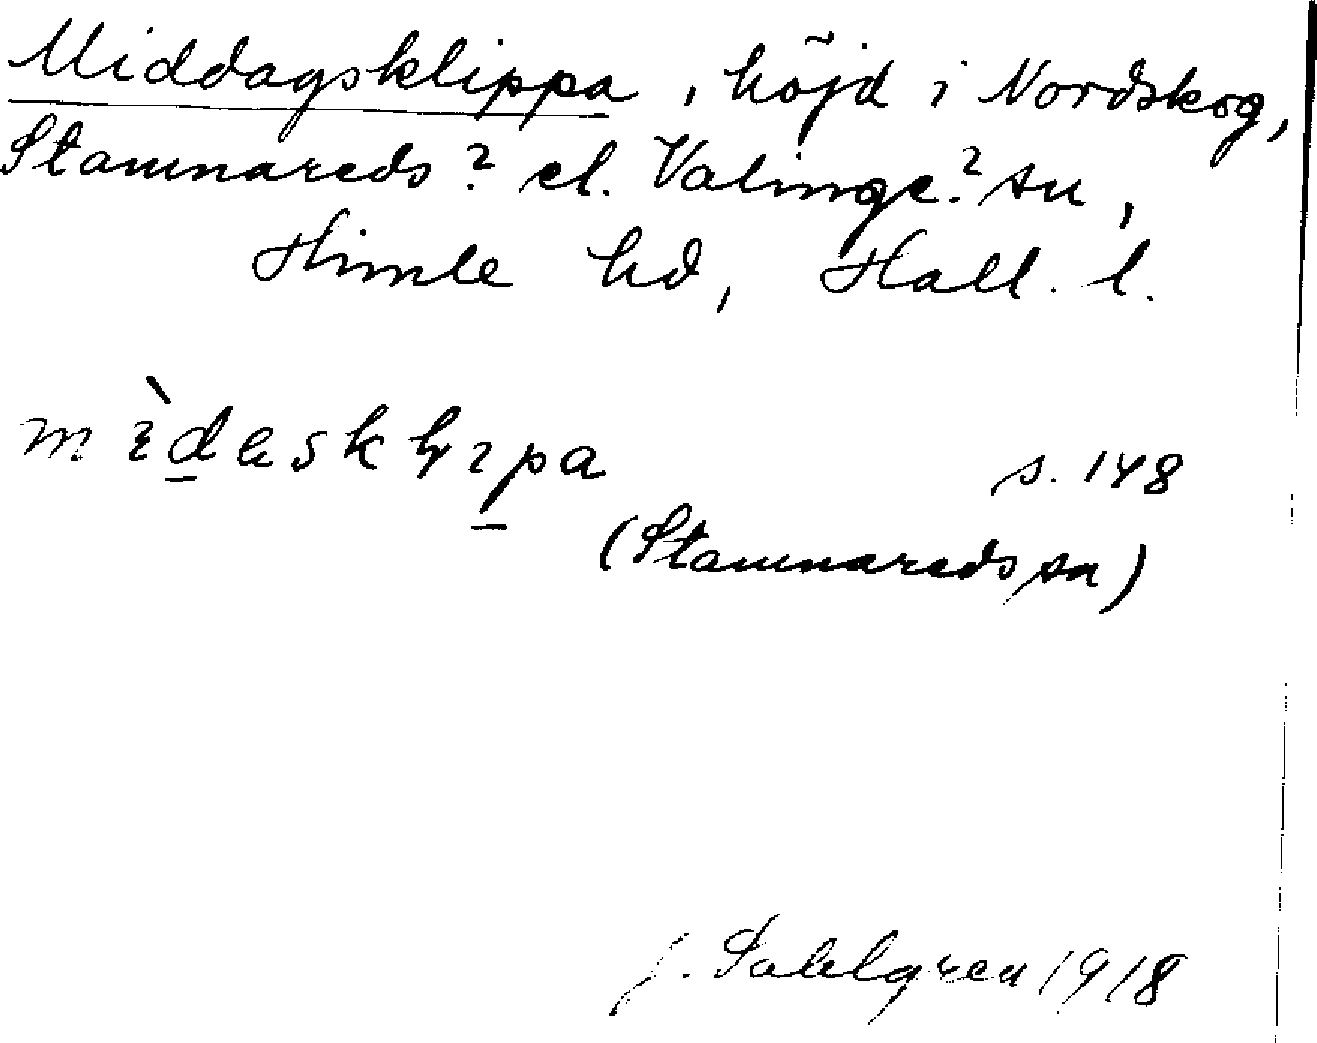 Middagsklippa, höjd i Nordskog,
Stamnareds? el. Valinge? sn,
Himle hd, Hall. l.
s. 148
(Stamnareds sn)
J. Sahlgren 1918